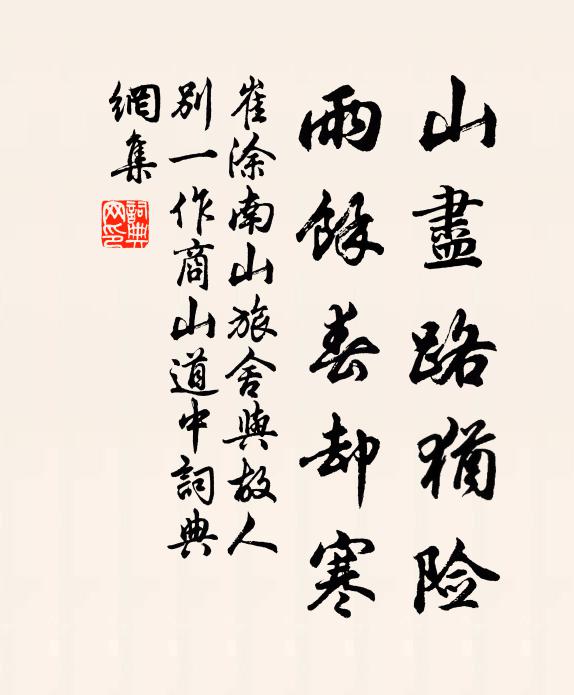 山盡路猶险
雨餘春却寒
崔涂南山旅舍與故人
别一作商山道中詞典
網集
詞典
网印